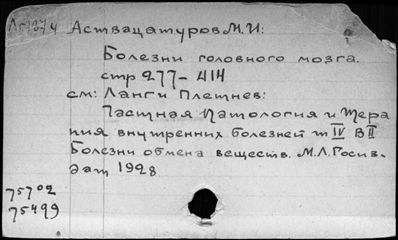 Аствацатуров М. И:
Болезни головного мозга.
стр 277-414
см: Ланг и Плетнев:
Частная Патология и Тера
пия внутренних болезней т IV В II
Болезни обмена веществ. М.Л. Госив.
дат 1928
75702
75499